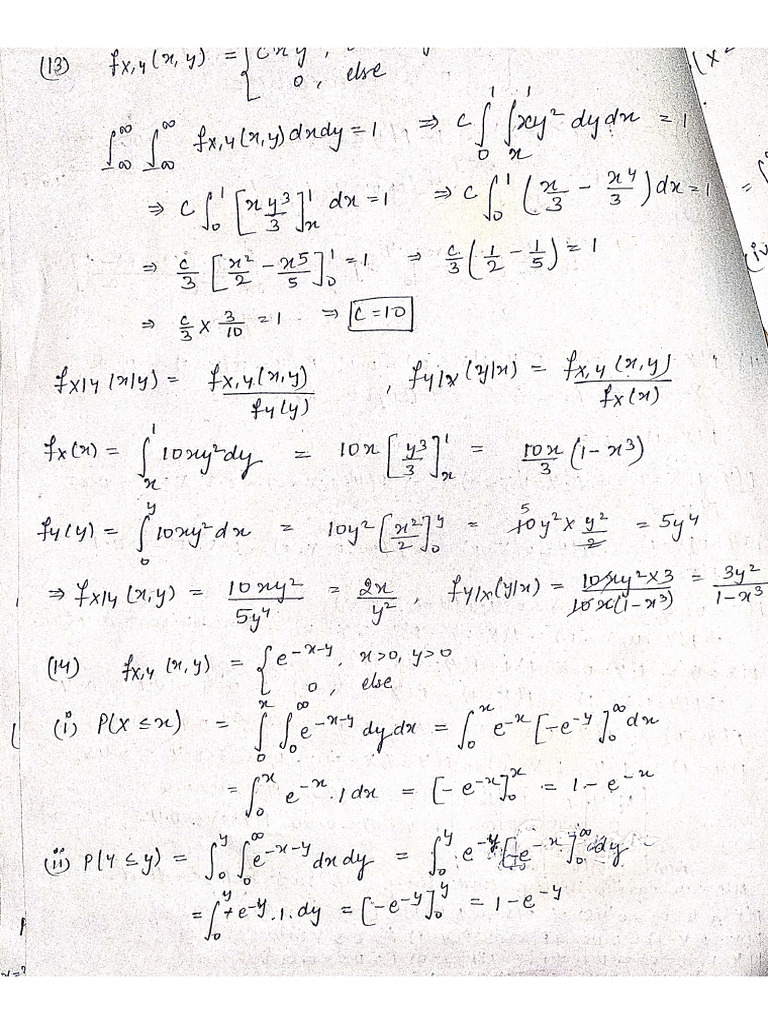 (13) f_{X,Y}(x,y) = { cxy
0, else
∫_{-∞}^{∞} ∫_{-∞}^{∞} f_{X,Y}(x,y) dx dy = 1 ⇒ c ∫_0^1 ∫_x^1 xy² dy dx = 1
⇒ c ∫_0^1 [x y³/3]_x^1 dx = 1 ⇒ c ∫_0^1 (x/3 - x⁴/3) dx = 1
⇒ c/3 [x²/2 - x⁵/5]_0^1 = 1 ⇒ c/3 (1/2 - 1/5) = 1
⇒ c/3 × 3/10 = 1 ⇒ c = 10
f_{X|Y}(x|y) = f_{X,Y}(x,y)/f_Y(y) , f_{Y|X}(y|x) = f_{X,Y}(x,y)/f_X(x)
f_X(x) = ∫_x^1 10xy² dy = 10x [y³/3]_x^1 = 10x/3 (1-x³)
f_Y(y) = ∫_0^y 10xy² dx = 10y² [x²/2]_0^y = 5 10y² × y²/2 = 5y⁴
⇒ f_{X|Y}(x,y) = 10xy²/5y⁴ = 2x/y² , f_{Y|X}(y|x) = 10xy²×3/10x(1-x³) = 3y²/1-x³
(14) f_{X,Y}(x,y) = { e^{-x-y}, x>0, y>0
0, else
(i) P(X ≤ x) = ∫_0^x ∫_0^∞ e^{-x-y} dy dx = ∫_0^x e^{-x} [-e^{-y}]_0^∞ dx
= ∫_0^x e^{-x} . 1 dx = [-e^{-x}]_0^x = 1 - e^{-x}
(ii) P(Y ≤ y) = ∫_0^y ∫_0^∞ e^{-x-y} dx dy = ∫_0^y e^{-y} [-e^{-x}]_0^∞ dy
= ∫_0^y +e^{-y} . 1 . dy = [-e^{-y}]_0^y = 1 - e^{-y}